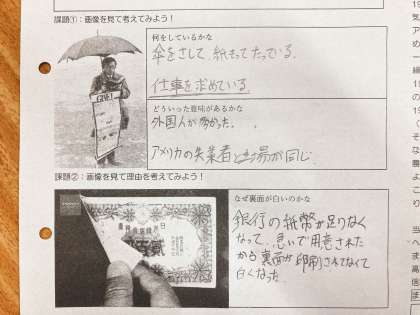 課題①：画像を見て考えてみよう！
何をしているかな
傘をさして、紙もってたっている。
仕事を求めている。
どういった意味があるかな
外国人が多かった。
アメリカの失業者と立場が同じ。
課題②：画像を見て理由を考えてみよう！
なぜ裏面が白いのかな
銀行の紙幣が足りなく
なって、急いで用意された
から裏面が印刷されてなくて
白くなった